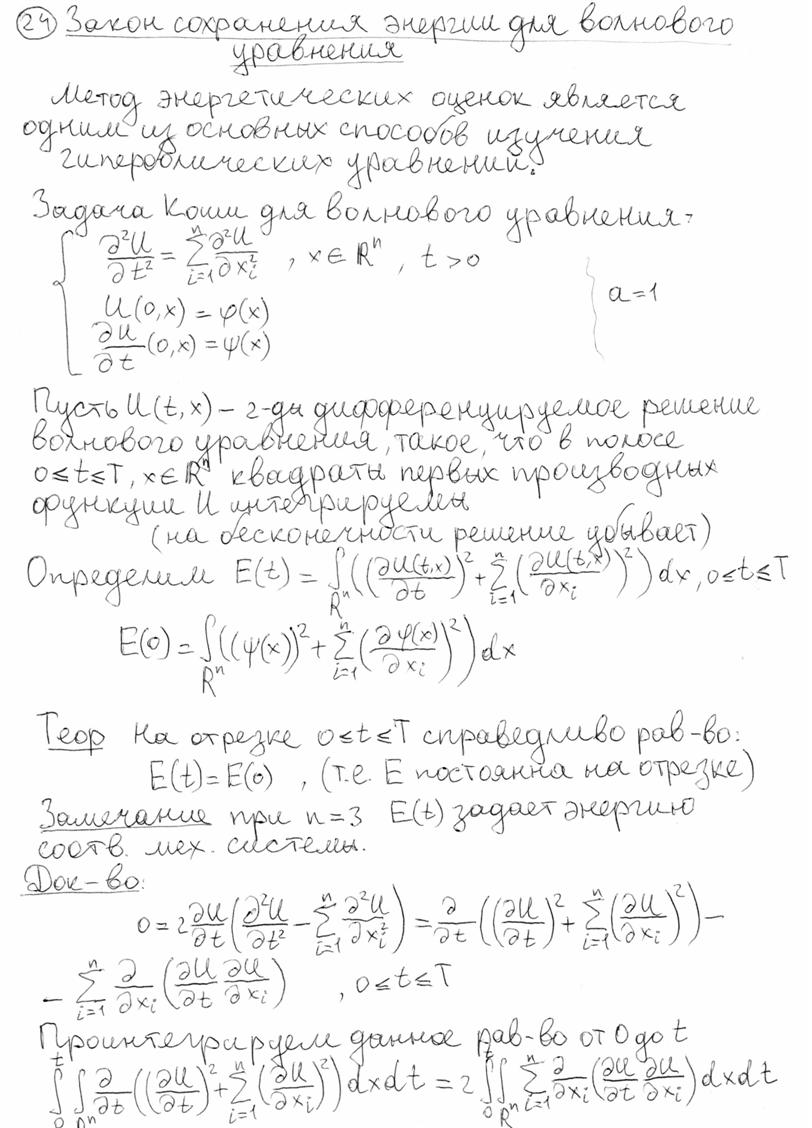 24 Закон сохранения энергии для волнового
уравнения
Метод энергетических оценок является
одним из основных способов изучения
гиперболических уравнений.
Задача Коши для волнового уравнения:
∂²U/∂t² = Σ_{i=1}^{n} ∂²U/∂x_i² , x ∈ ℝⁿ , t > 0
U(0,x) = φ(x)
a=1
∂U/∂t (0,x) = ψ(x)
Пусть U(t,x) – 2-ды дифференцируемое решение
волнового уравнения, такое, что в полосе
0≤t≤T, x∈ℝⁿ квадраты первых производных
функции U интегрируемы
(на бесконечности решение убывает)
Определим E(t) = ∫_{ℝⁿ} ((∂U(t,x)/∂t)² + Σ_{i=1}^{n} (∂U(t,x)/∂x_i)²) dx, 0≤t≤T
E(0) = ∫_{ℝⁿ} ((ψ(x))² + Σ_{i=1}^{n} (∂φ(x)/∂x_i)²) dx
Теор На отрезке 0≤t≤T справедливо рав-во:
E(t) = E(0) , (т.е. E постоянна на отрезке)
Замечание при n=3 E(t) задает энергию
соотв. мех. системы.
Док-во:
0 = 2 ∂U/∂t (∂²U/∂t² − Σ_{i=1}^{n} ∂²U/∂x_i²) = ∂/∂t ((∂U/∂t)² + Σ_{i=1}^{n} (∂U/∂x_i)²) −
− Σ_{i=1}^{n} ∂/∂x_i (∂U/∂t ∂U/∂x_i) , 0≤t≤T
Проинтегрируем данное рав-во от 0 до t
∫_0^t ∫_{ℝⁿ} ∂/∂t ((∂U/∂t)² + Σ_{i=1}^{n} (∂U/∂x_i)²) dxdt = 2 ∫_0^t ∫_{ℝⁿ} Σ_{i=1}^{n} ∂/∂x_i (∂U/∂t ∂U/∂x_i) dxdt